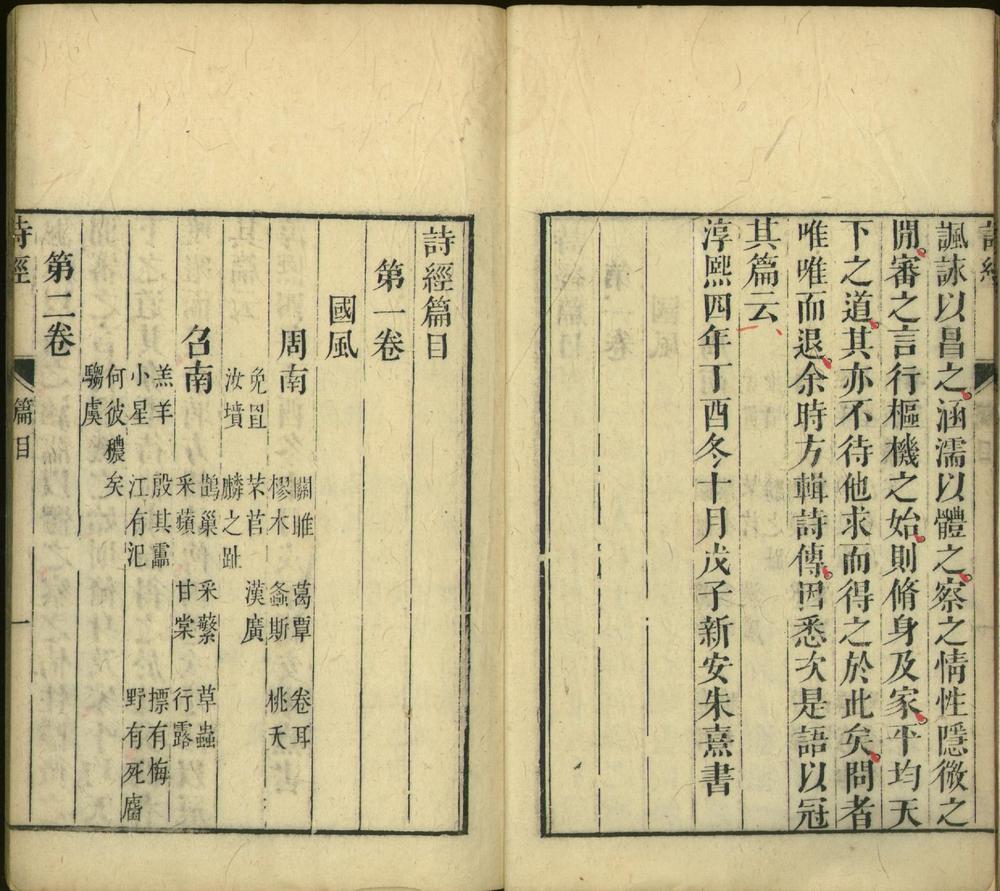 諷詠以昌之涵濡以體之察之情性隱微之
閒審之言行樞機之始則脩身及家平均天
下之道其亦不待他求而得之於此矣問者
唯唯而退余時方輯詩傳因悉次是語以冠
其篇云
淳熙四年丁酉冬十月戊子新安朱熹書
詩經篇目
第一卷
國風
周南
關雎 葛覃 卷耳
樛木 螽斯 桃夭
兔罝 芣苢 漢廣
汝墳 麟之趾
召南
鵲巢 采蘩 草蟲
采蘋 甘棠 行露
羔羊 殷其靁 摽有梅
小星 江有汜 野有死麕
何彼穠矣
騶虞
第二卷
詩經 篇目 一